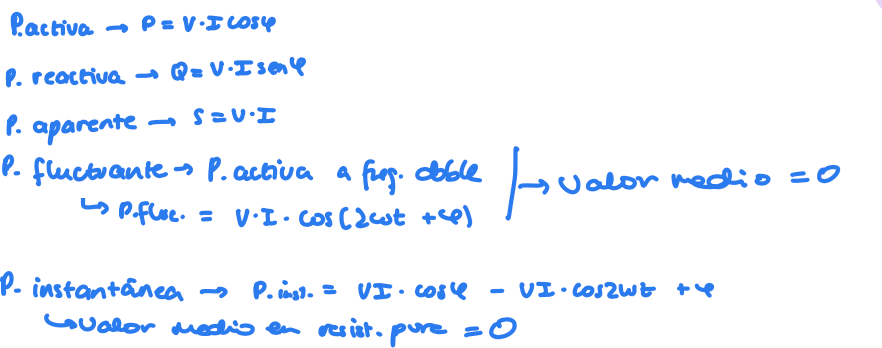 P.activa → P = V·I cosφ
P. reactiva → Q = V·I senφ
P. aparente → S = V·I
P. fluctuante → P. activa a freq. doble
↳ P.fluc. = V·I · cos(2ωt + φ)
→ Valor medio = 0
P. instantánea → P.inst. = VI · cosφ - VI · cos2ωt + φ
↳ Valor medio en resist. pura = 0